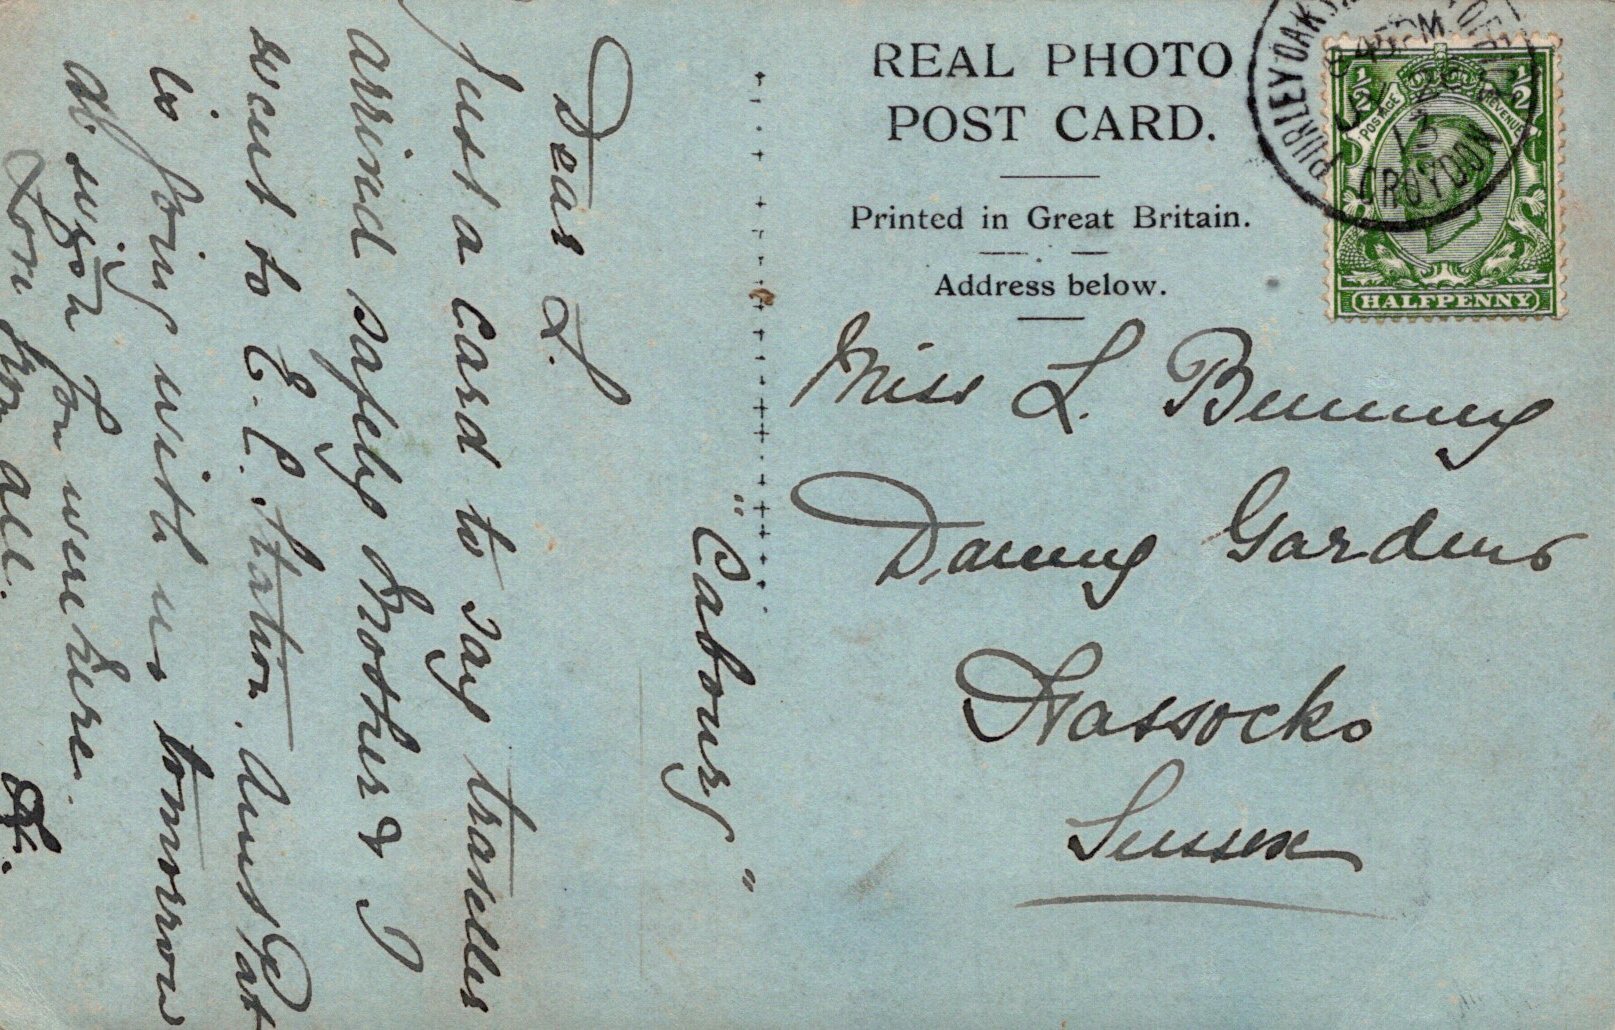 REAL PHOTO
POST CARD.
Printed in Great Britain.
Address below.
PURLEY OAKS
45 PM
13
CROYDON
1/2 1/2
POSTAGE REVENUE
HALFPENNY
Miss L. Bunney
Danny Gardens
Hassocks
Sussex
"Cabourg"
Dear L.
Just a card to say traveller
arrived safely Mother & I
went to E.C. Station. Aunt Pat
is going with us tomorrow
were here.
Love from all.